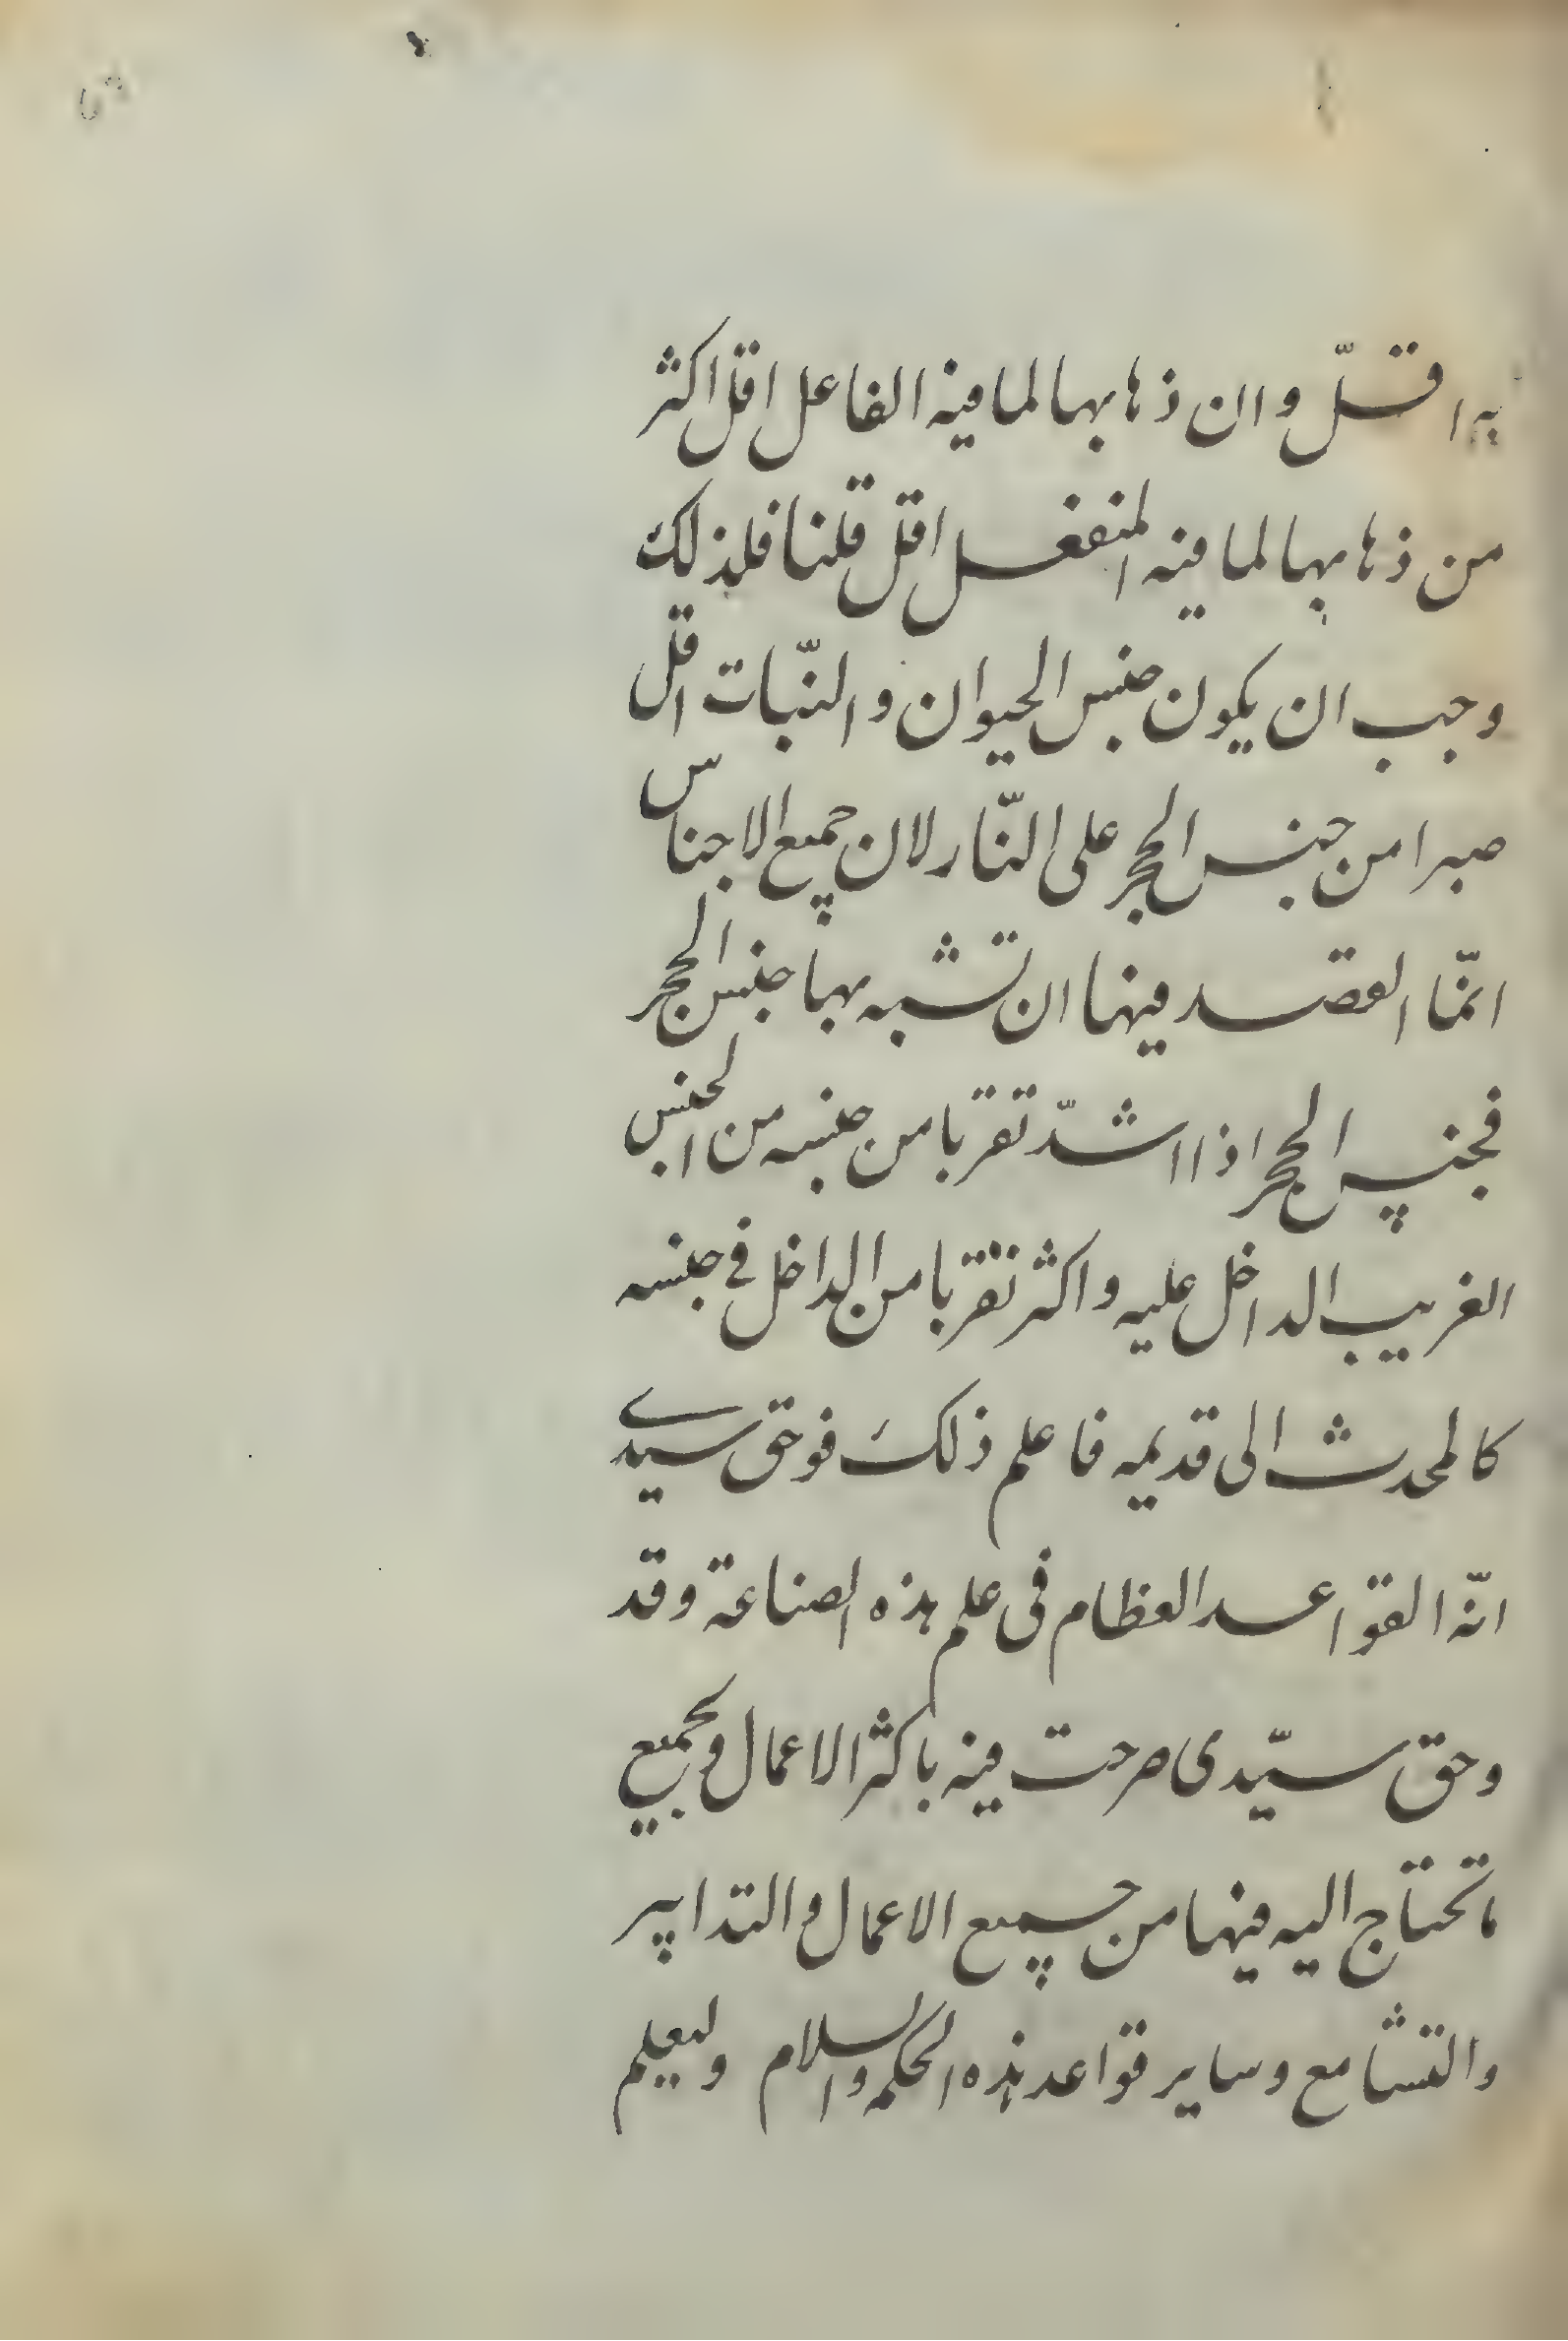 به اقلّ وان ذهابها لما فيه الفاعل اقل اكثر
من ذهابها لما فيه المنفعل اقل قلنا فلذلك
وجب ان يكون جنس الحيوان والنّبات اقل
صبرا من جنس الحجر على النّار لان جميع الاجناس
انمّا القصد فيها ان تشبه بها جنس الحجر
فجنس الحجر اذا اشدّ تقربا من جنسه من الجنس
الغريب الداخل عليه واكثر تقربا من الداخل في جنسه
كالمحدث الى قديمه فاعلم ذلك فوحق سيدي
انّه القواعد العظام في علم هذه الصناعة وقد
وحق سيّدى صرحت فيه باكثر الاعمال وبجميع
ما تحتاج اليه فيها من جميع الاعمال والتدابير
والتشامع وساير قواعد هذه الحكمه والسلام وليعلم